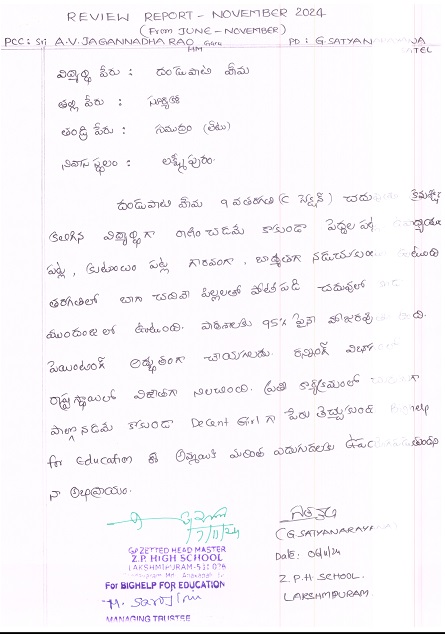 REVIEW REPORT - NOVEMBER 2024
(From JUNE - NOVEMBER)
PCC: Sri A.V. JAGANNADHA RAO Garu HM PD: G.SATYAN
విద్యార్థి పేరు : దండుపాటి హేమ
తల్లి పేరు :
తండ్రి పేరు : సముద్రం (లేటు)
నివాస స్థలం : లక్ష్మీపురం
దండుపాటి హేమ 9 వ తరగతి (C సెక్షన్)
కలిగిన విద్యార్థిగా రాణించడమే కాకుండా పెద్దల పట్ల
పట్ల, కుటుంబం పట్ల గౌరవంగా, బాధ్యతగా నడుచుకుంటూ ఉంటుంది
తరగతిలో బాగా చదివే పిల్లలతో పోటీ పడి చదువులో
ముందంజలో ఉంటుంది. పాఠశాలకు 95% పైనే హాజరవు
పెయింటింగ్ అద్భుతంగా చేయగలదు. రన్నింగ్
రాష్ట్రస్థాయిలో విజేతగా నిలిచింది. ప్రతి కార్యక్రమంలో
పాల్గొనడమే కాకుండా Decent Girl గా పేరు తెచ్చుకుంది Bighelp
for Education ఈ అమ్మాయికి మరింత ఎదుగుదలకు
నా అభిప్రాయం.
7/11/24
GAZETTED HEAD MASTER
Z.P. HIGH SCHOOL
LAKSHMIPURAM-531 026
For BIGHELP FOR EDUCATION
MANAGING TRUSTEE
(G.SATYANARAYA
Date:
Z.P.H SCHOOL.
LAKSHMIPURAM.